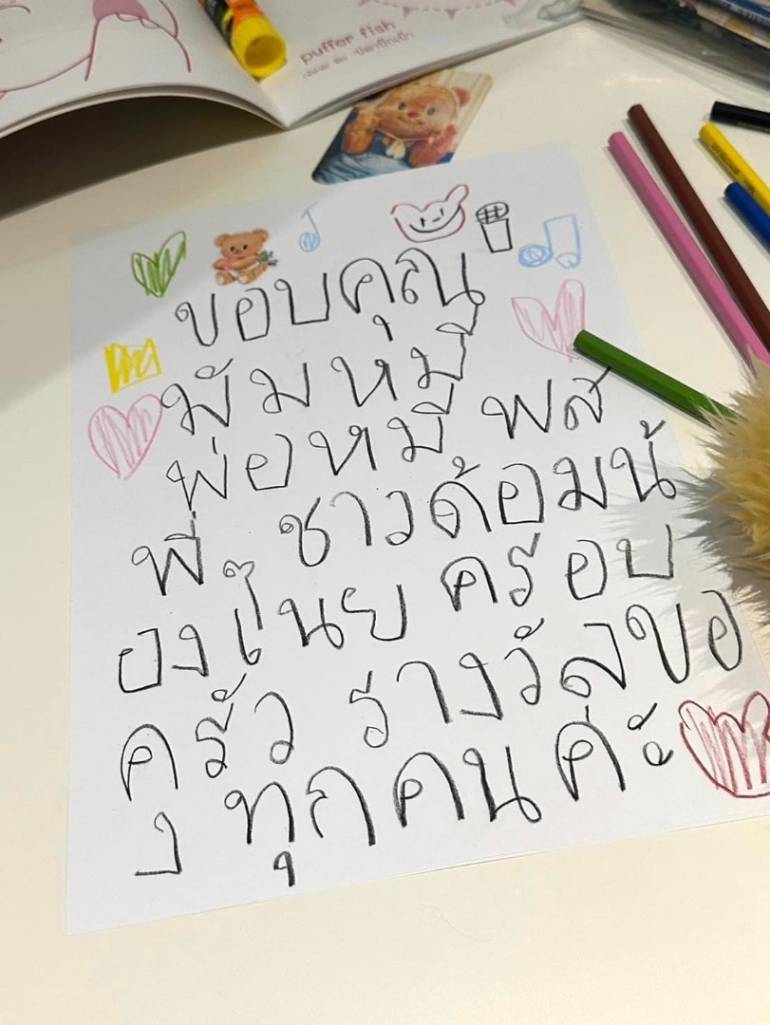 puffer fish
ปลาปักเป้า
ขอบคุณ
มัมหมี
พ่อหมี พส
พี่ ชาวด้อมน้
องเนย ครอบ
ครัว รางวัลขอ
ง ทุกคนค่ะ